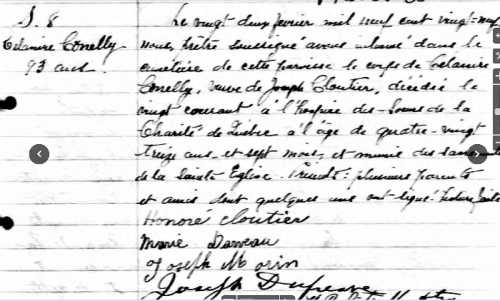 S. 8
Célanire Conelly
93 ans.
Le vingt deux février mil neuf cent vingt-neuf
nous, prêtre soussigné avons inhumé dans le
cimetière de cette paroisse le corps de Célanire
Conelly, veuve de Joseph Cloutier, décédée le
vingt courant à l'hospice des Sœurs de la
Charité de Québec à l'âge de quatre-vingt
treize ans et sept mois, et munie des sacrements
de la Sainte Eglise. Présents: plusieurs parents
et amis dont quelques uns ont signé. Lecture faite
Honoré Cloutier
Marie Darveau
Joseph Morin
Joseph Dufresne